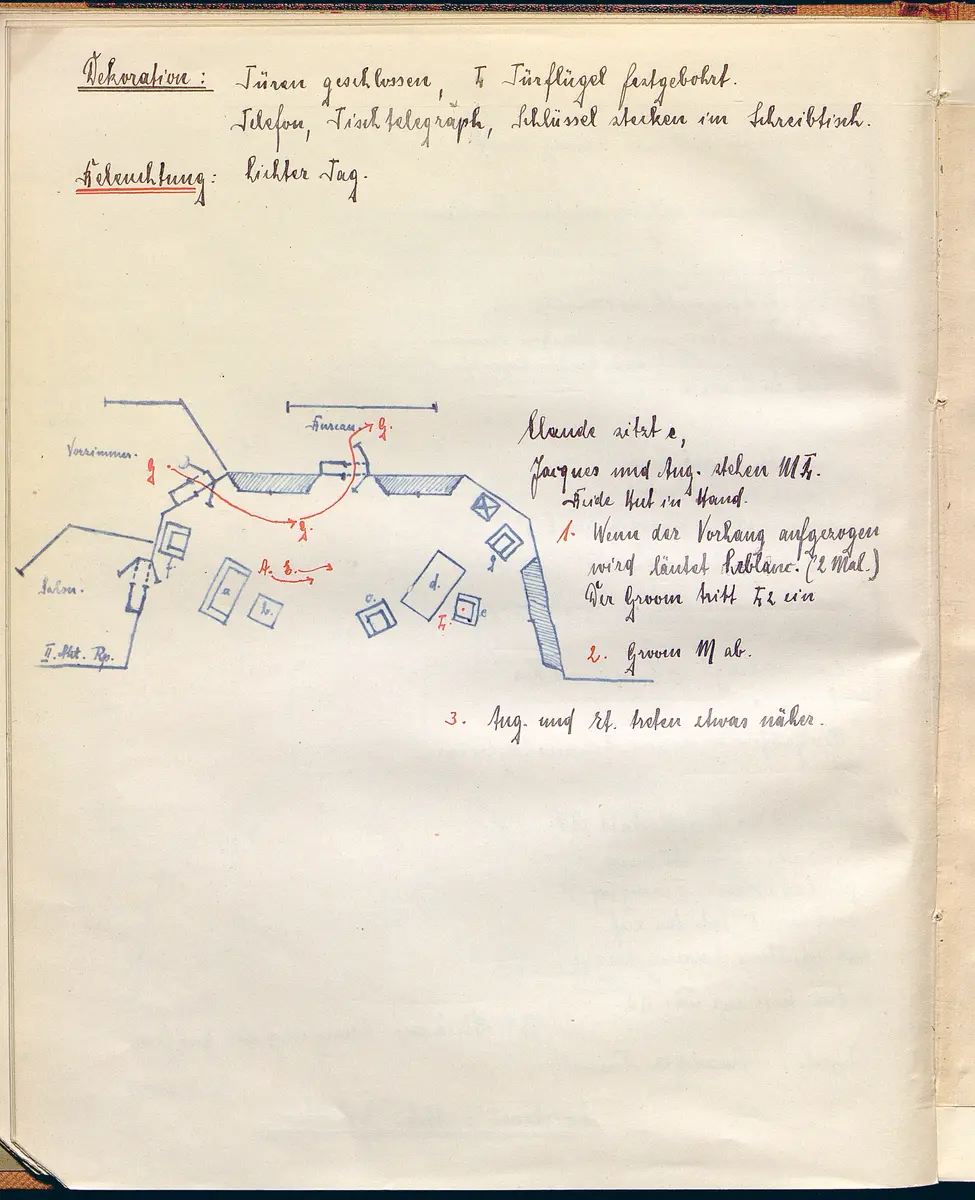 Dekoration: Türen geschlossen, L Türflügel festgebohrt.
Telefon, Tischtelegraph, Schlüssel stecken im Schreibtisch.
Beleuchtung: Lichter Tag.
Bureau.
G.
Vorzimmer.
G.
G.
f
g
A. E.
a
b.
c.
d.
e
L.
Salon.
II. Akt. Rp.
Claude sitzt e,
Jacques und Aug. stehen ML.
Beide Hut in Hand.
1. Wenn der Vorhang aufgezogen
wird läutet Leblanc. (2 Mal.)
Der Groom tritt L2 ein
2. Groom M ab.
3. Aug. und Et. treten etwas näher.